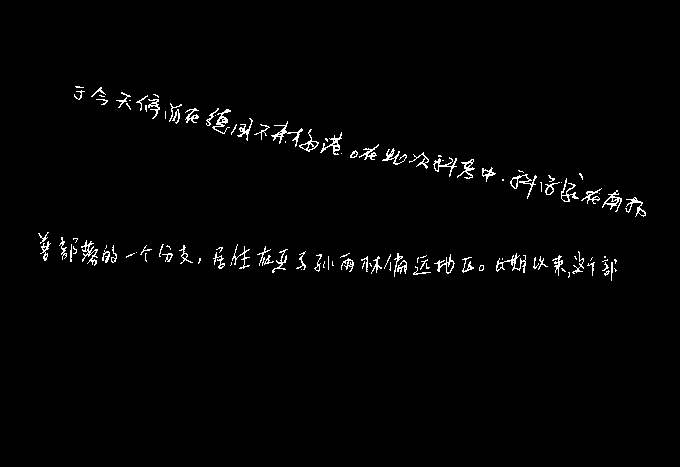 于今天停泊在德国不来梅港。在此次科考中,科学家在南极
著部落的一个分支,居住在亚马孙雨林偏远地区。长期以来,这个部